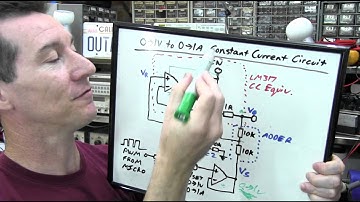 OUTA
0→1V to 0→1A Constant Current Circuit
IN
VR
LM317
CC Equiv.
1R
VO
10K
ADDER
10K
PWM
FROM
MICRO
VS
0→1V